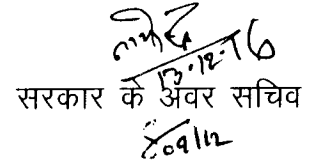 13.12.16
सरकार के अवर सचिव
09/12